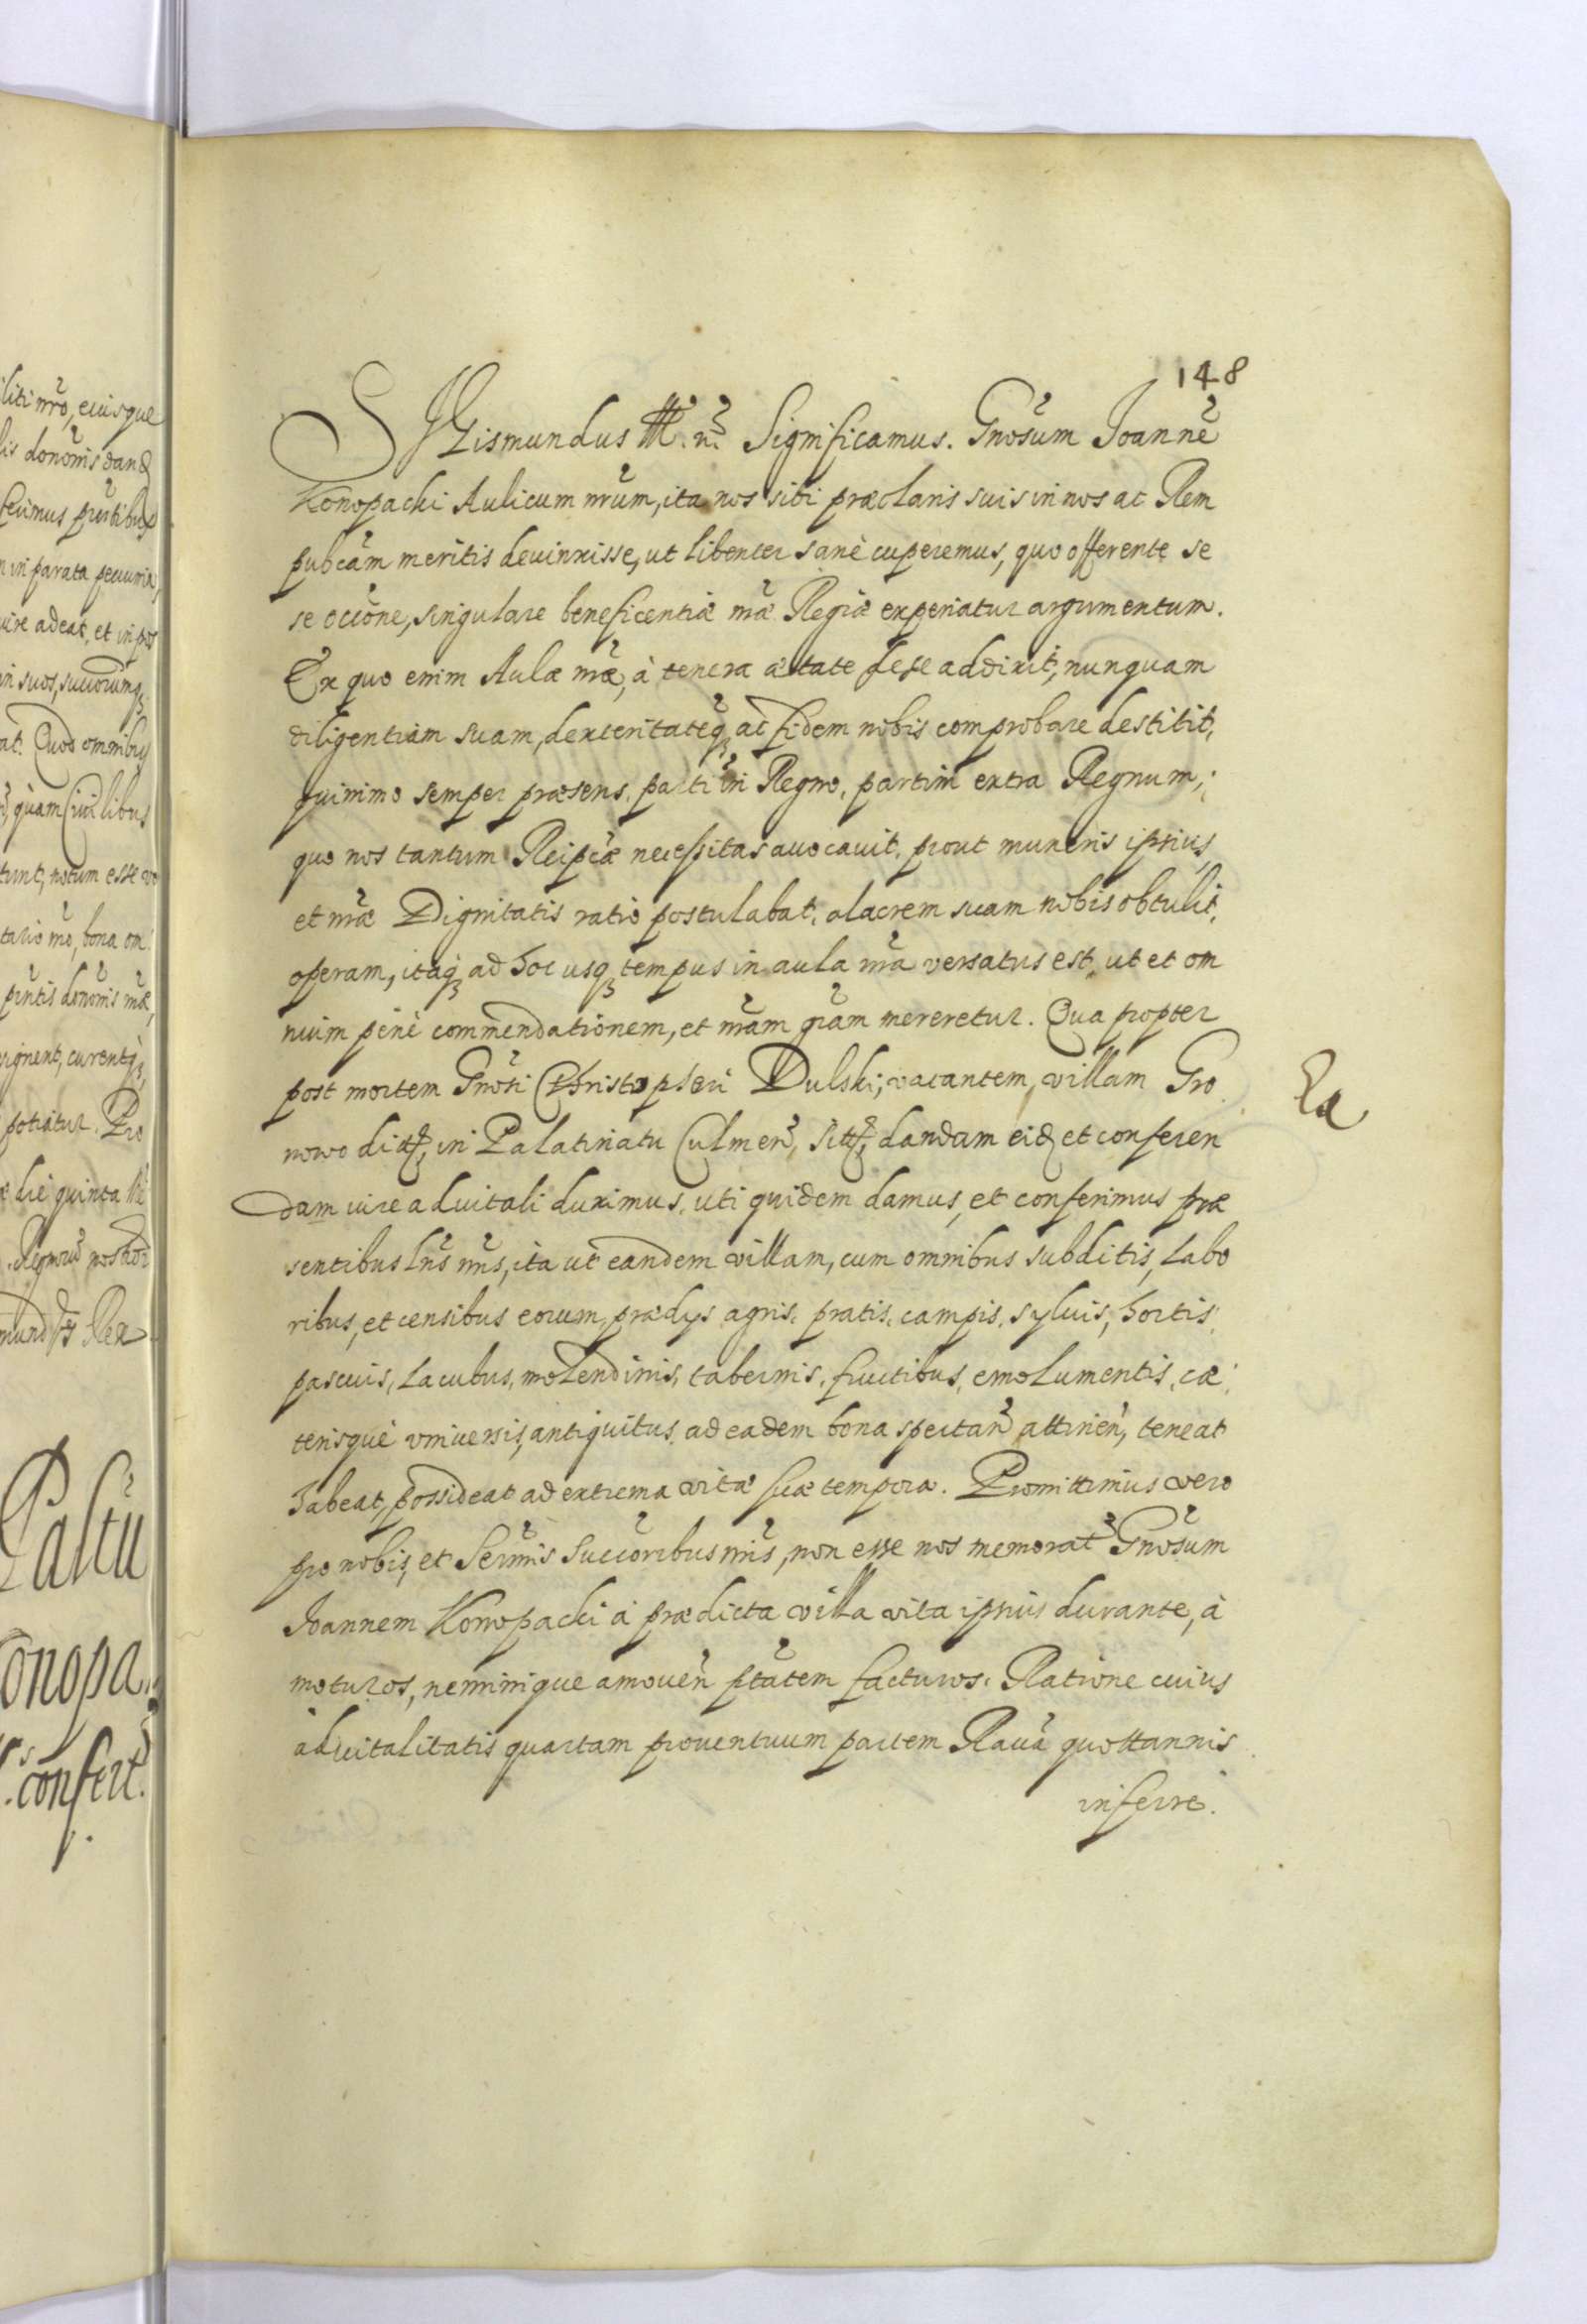 liti nr̃o, eiusque
lis donõnis dand
in parata pecunia,
uire adeat, et in
in suos, succorumq,
at. Quod omnibus
quam Ciuilibus
tunt, notum esse vo
tario nr̃o, bona om
p̃ntis donõnis nr̃æ,
signent, curentq,
potiatur. Pro
die quinta
Regnorũ nostror
mund Rex
onopa
confert.
148
SIGismundus III. n̄. Significamus. Gnõsum Joannẽ
Konopacki Aulicum nr̃um, ita nos sibi præclaris suis in nos ac Rem
pubcãm meritis deuinxisse, ut libenter sanè cuperemus, quo offerente se
se occõne, singulare beneficentiæ nr̃æ Regiæ experiatur argumentum.
Ex quo enim Aulæ nr̃æ, à tenera ætate sese addixit, nunquam
diligentiam suam, dexteritatẽq, ac fidem nobis comprobare destitit,
quinimo semper præsens, partĩ in Regno, partim extra Regnum,
quo nos tantum Reipcæ necessitas auocauit, prout muneris ipsius,
et nr̃æ Dignitatis ratio postulabat, alacrem suam nobis obtulit,
operam, itaq, ad hoc usq, tempus in aula nr̃a versatus est, ut et om
nium penè commendationem, et nr̃am gr̃am mereretur. Qua propter
post mortem Gnõsi Christopheri Dulski, vacantem, villam Gro
nowo dictã, in Palatinatu Culmeñ, sitã, dandam eid et conferen
dam iure aduitali duximus, uti quidem damus, et conferimus præ
sentibus lr̃is nr̃is, ita ut eandem villam, cum omnibus subditis, labo
ribus, et censibus eorum, prædys agris, pratis, campis, syluis, hortis,
pascuis, lacubus, molendinis, tabernis, fructibus, emolumentis, cæ
terisque vniuersis, antiquitus ad eadem bona spectañ attineñ, teneat
habeat, possideat ad extrema vitæ suæ tempora. Promittimus vero
pro nobis, et Serm̃is Succoribus nr̃is, non esse nos memorat̃ Gnõsum
Joannem Konopacki à prædicta villa vita ipsius durante, à
moturos, neminique amoueñ ptãtem facturos. Ratione cuius
aduitalitatis quartam prouentuum partem Rauã quottannis
inferre.